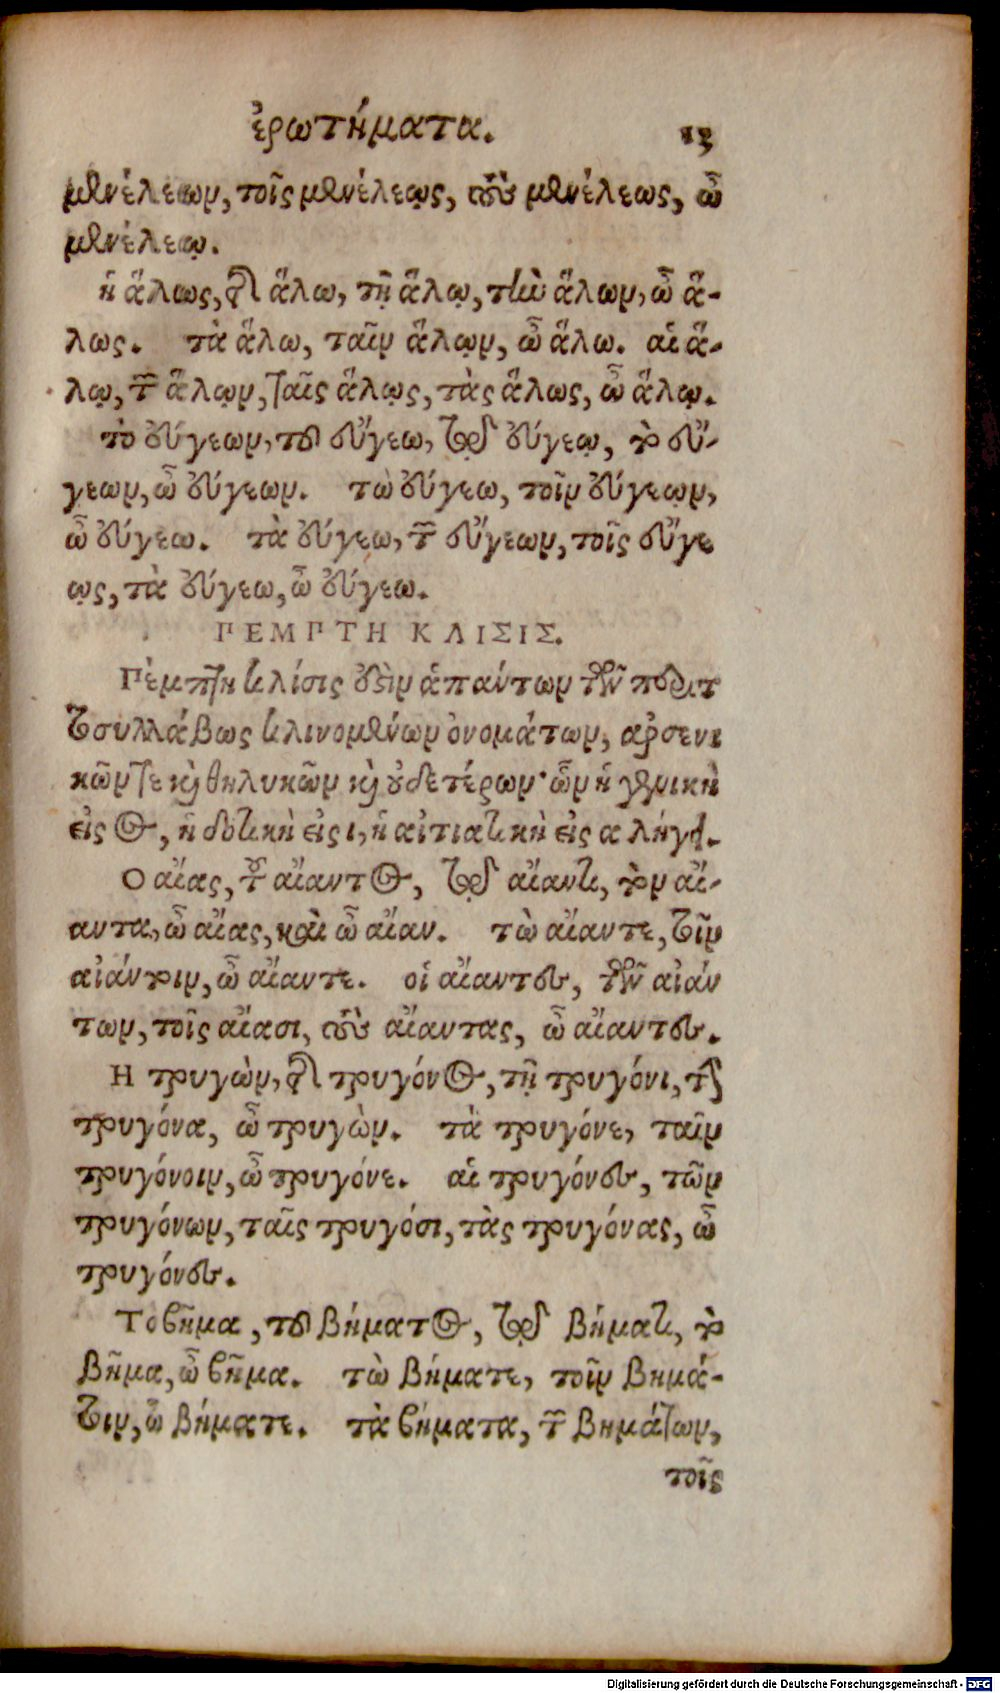 ἐρωτήματα. 13
μενέλεων, τοῖς μενέλεῳς, τοὺς μενέλεως, ὦ
μενέλεῳ.
ἡ ἅλως, τῆς ἅλω, τῇ ἅλῳ, τὴν ἅλων, ὦ ἅ-
λως. τὰ ἅλω, ταῖν ἅλῳν, ὦ ἅλω. αἱ ἅ-
λῳ, τῶν ἅλῳν, ταῖς ἅλῳς, τὰς ἅλως, ὦ ἅλῳ.
τὸ εὔγεων, τοῦ εὔγεω, τῷ εὔγεῳ, τὸ εὔ-
γεων, ὦ εὔγεων. τὼ εὔγεω, τοῖν εὔγεῳν,
ὦ εὔγεω. τὰ εὔγεω, τῶν εὔγεων, τοῖς εὔγε
ῳς, τὰ εὔγεω, ὦ εὔγεω.
ΠΕΜΠΤΗ ΚΛΙΣΙΣ.
Πέμπτη κλίσις ἐστὶν ἁπάντων τῶν περιτ
τοσυλλάβως κλινομένων ὀνομάτων, ἀρσενι
κῶν τε καὶ θηλυκῶν καὶ οὐδετέρων· ὧν ἡ γενικὴ
εἰς ος, ἡ δοτικὴ εἰς ι, ἡ αἰτιατικὴ εἰς α λήγει.
Ο αἴας, τοῦ αἴαντος, τῷ αἴαντι, τὸν αἴ-
αντα, ὦ αἴας, καὶ ὦ αἴαν. τὼ αἴαντε, τοῖν
αἰάντοιν, ὦ αἴαντε. οἱ αἴαντες, τῶν αἰάν
των, τοῖς αἴασι, τοὺς αἴαντας, ὦ αἴαντες.
Η τρυγὼν, τῆς τρυγόνος, τῇ τρυγόνι, τὴν
τρυγόνα, ὦ τρυγὼν. τὰ τρυγόνε, ταῖν
τρυγόνοιν, ὦ τρυγόνε. αἱ τρυγόνες, τῶν
τρυγόνων, ταῖς τρυγόσι, τὰς τρυγόνας, ὦ
τρυγόνες.
Το βῆμα, τοῦ βήματος, τῷ βήματι, τὸ
βῆμα, ὦ βῆμα. τὼ βήματε, τοῖν βημά-
τοιν, ὦ βήματε. τὰ βήματα, τῶν βημάτων,
τοῖς
Digitalisierung gefördert durch die Deutsche Forschungsgemeinschaft - DFG